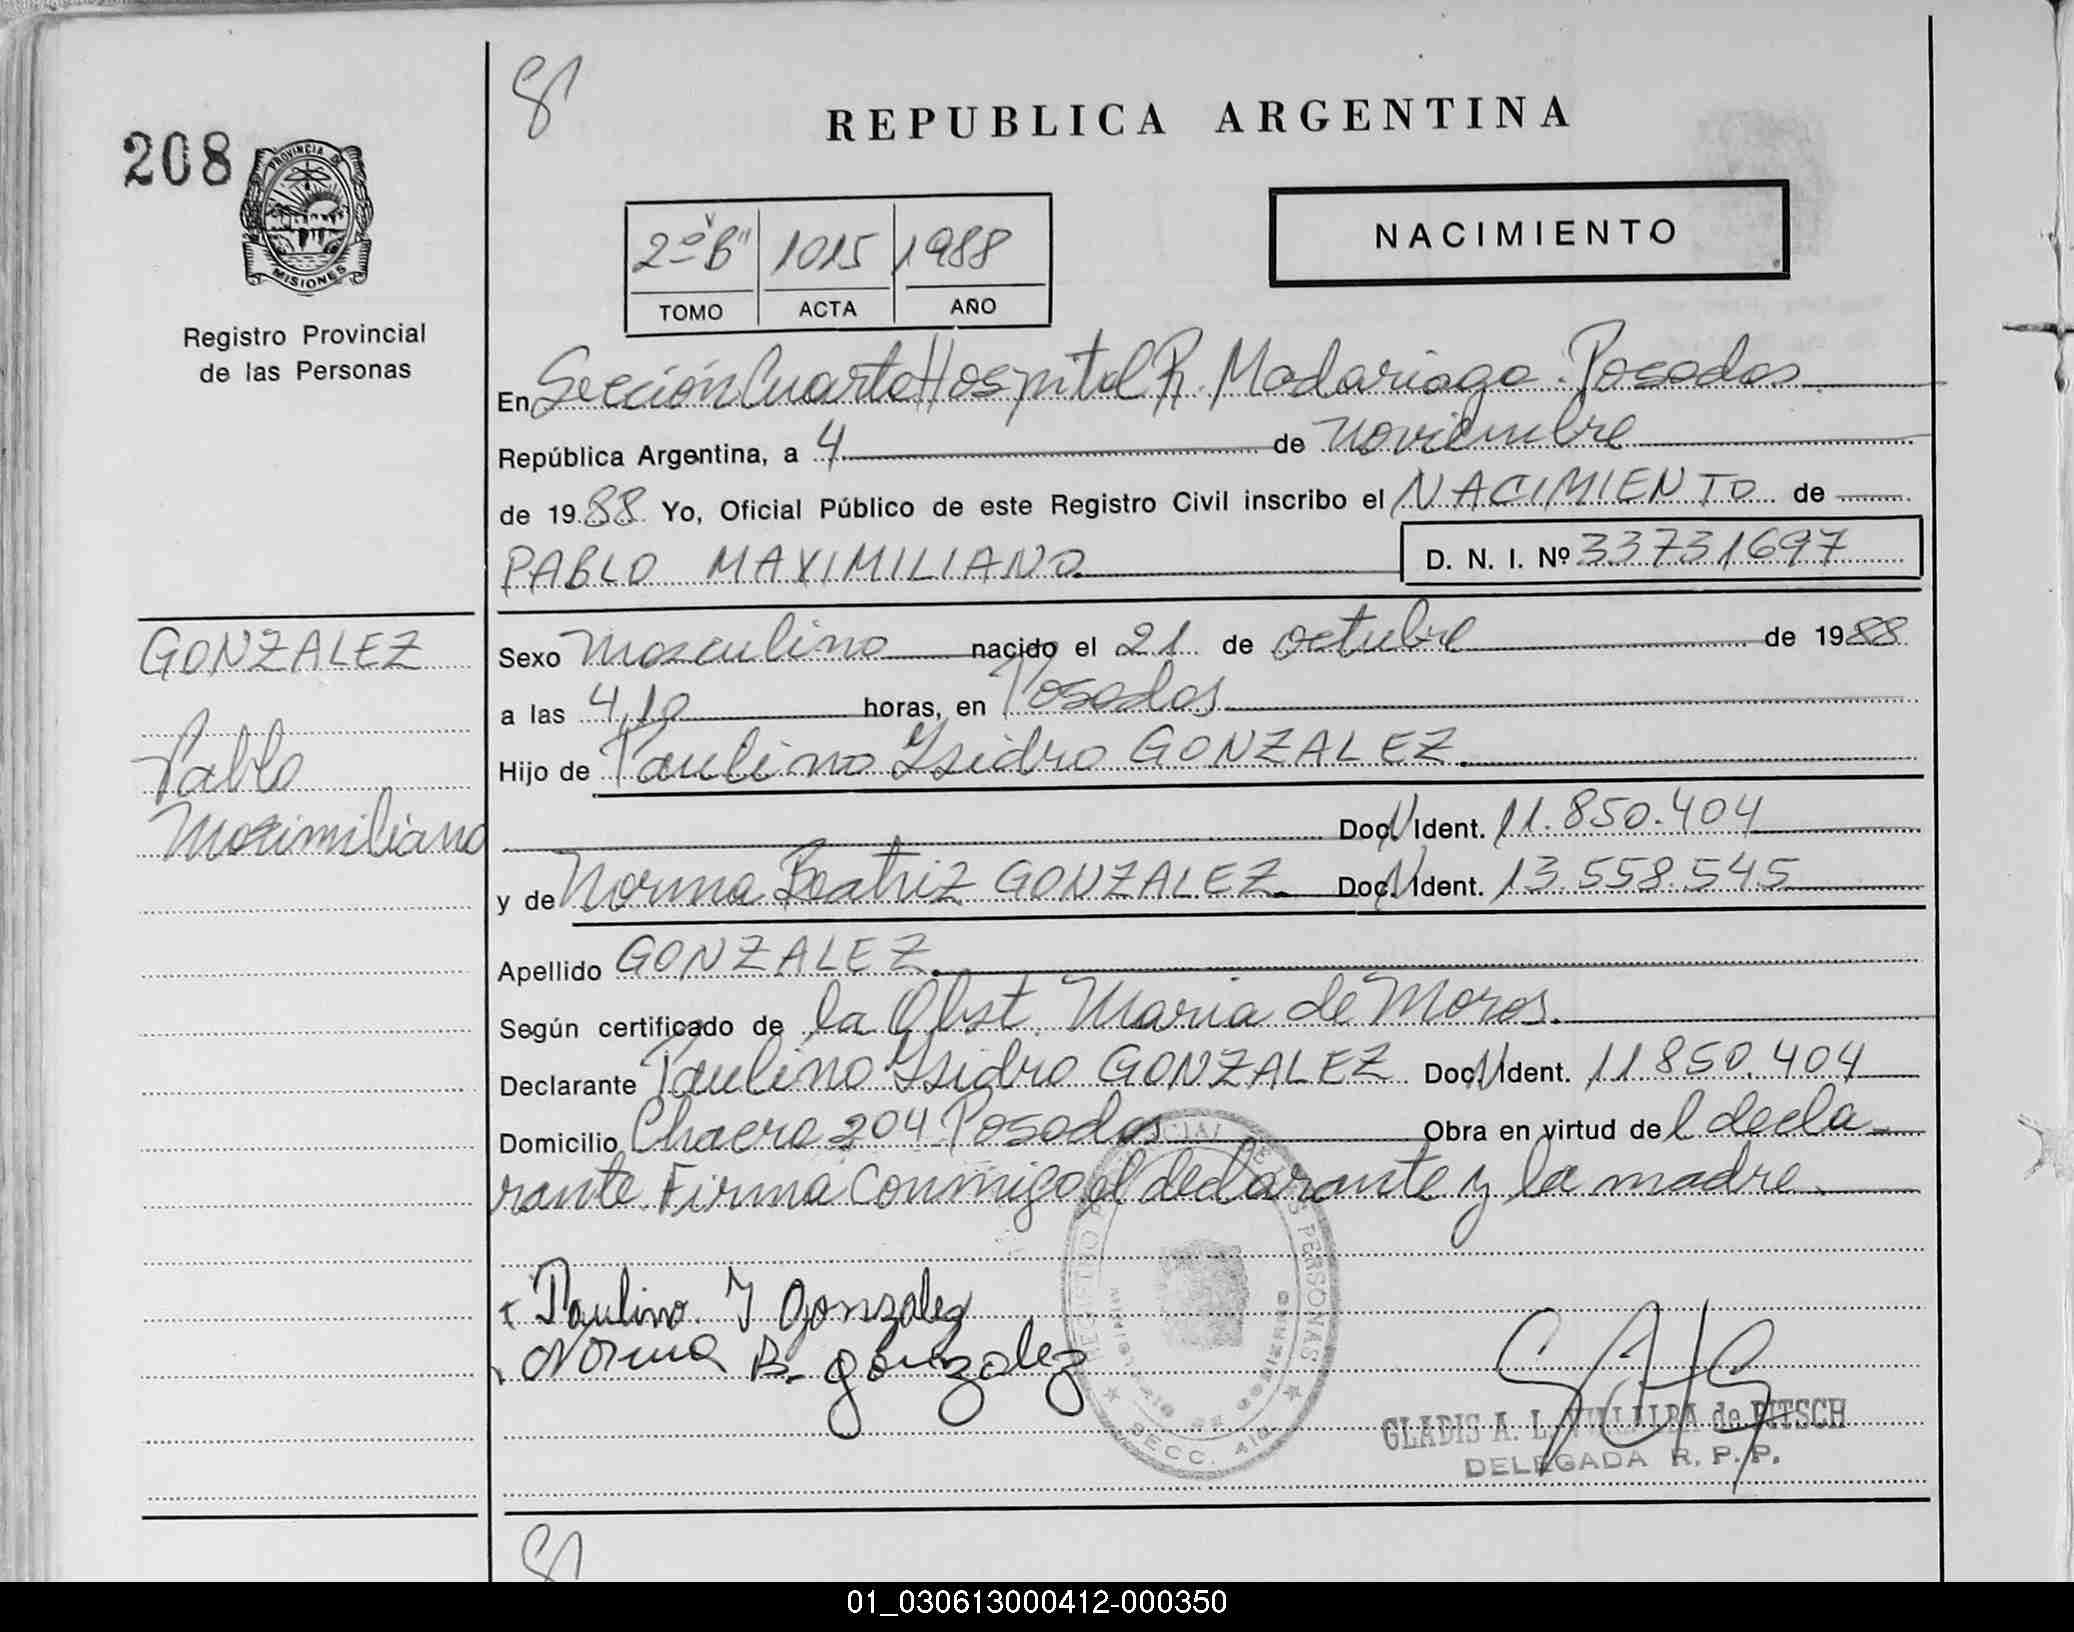 8
REPUBLICA ARGENTINA
208
PROVINCIA DE
MISIONES
Registro Provincial
de las Personas
NACIMIENTO
2º "B" 1015 1988
TOMO ACTA AÑO
En Sección Cuarta Hospital R. Madariaga. Posadas
República Argentina, a 4 de Noviembre
de 1988 Yo, Oficial Público de este Registro Civil inscribo el NACIMIENTO de
PABLO MAXIMILIANO D. N. I. Nº 33731697
GONZALEZ
Pablo
Maximiliano
Sexo Masculino nacido el 21 de octubre de 1988
a las 4,10 horas, en Posadas
Hijo de Paulino Isidro GONZALEZ
Doc. Ident. 11.850.404
y de Norma Beatriz GONZALEZ Doc. Ident. 13.558.545
Apellido GONZALEZ
Según certificado de la Obst. Maria de Moros.
Declarante Paulino Isidro GONZALEZ Doc. Ident. 11850.404
Domicilio Chacra 204 Posadas Obra en virtud del decla
rante. Firma Conmigo el declarante y la madre.
Paulino. I Gonzalez
Norma B. gonzalez
REGISTRO PROVINCIAL DE LAS PERSONAS
SECC. 4ta
GLADIS A. L. VILLALBA de PITSCH
DELEGADA R. P. P.
01_030613000412-000350